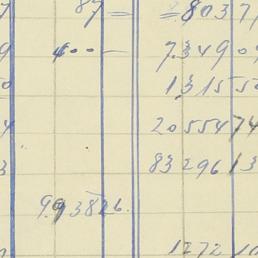 7 87 = = 8037
9 400 — 7349 09
0 1315 50
4 20554 74
3 83296 13
99388 26.
1272 10